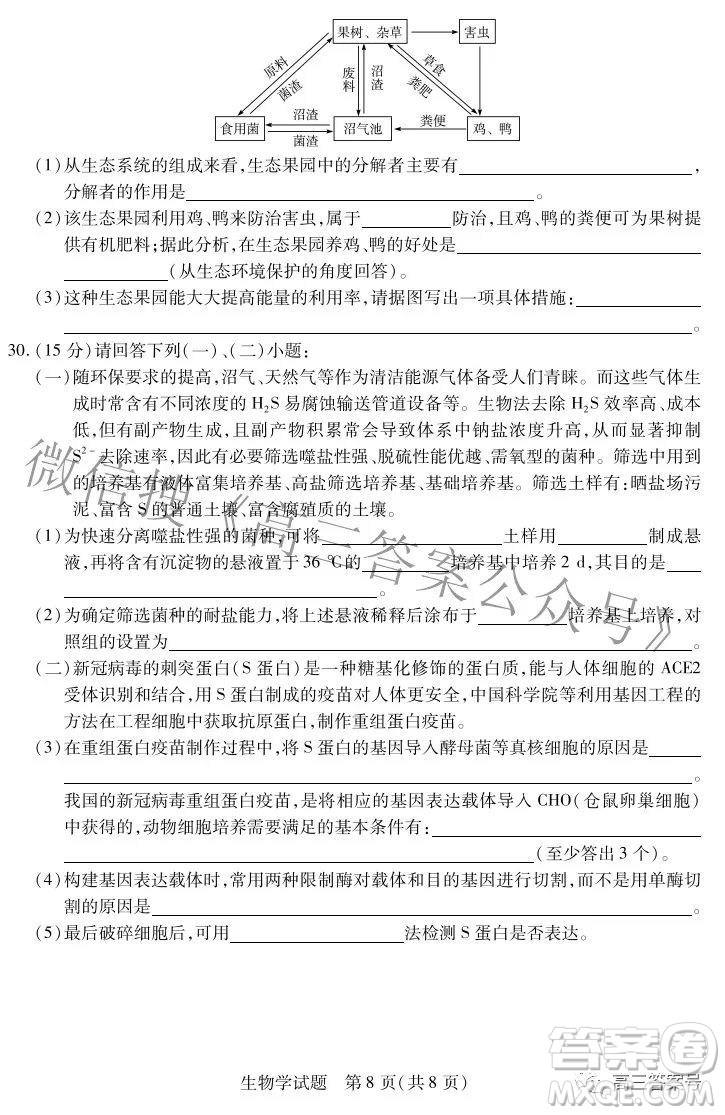 果树、杂草
害虫
原料
菌渣
废料
沼渣
草食
粪肥
食用菌
沼渣
菌渣
沼气池
粪便
鸡、鸭
(1)从生态系统的组成来看,生态果园中的分解者主要有,
分解者的作用是。
(2)该生态果园利用鸡、鸭来防治害虫,属于防治,且鸡、鸭的粪便可为果树提
供有机肥料;据此分析,在生态果园养鸡、鸭的好处是
(从生态环境保护的角度回答)。
(3)这种生态果园能大大提高能量的利用率,请据图写出一项具体措施:
。
30.(15分)请回答下列(一)、(二)小题:
(一)随环保要求的提高,沼气、天然气等作为清洁能源气体备受人们青睐。而这些气体生
成时常含有不同浓度的H₂S易腐蚀输送管道设备等。生物法去除H₂S效率高、成本
低,但有副产物生成,且副产物积累常会导致体系中钠盐浓度升高,从而显著抑制
S²⁻去除速率,因此有必要筛选噬盐性强、脱硫性能优越、需氧型的菌种。筛选用到
的培养基有液体富集培养基、高盐筛选培养基、基础培养基。筛选土样有:晒盐场污
泥、富含S的普通土壤、富含腐殖质的土壤。
(1)为快速分离噬盐性强的菌种,可将土样用制成悬
液,再将含有沉淀物的悬液置于36 ℃的培养基中培养2 d,其目的是
。
(2)为确定筛选菌种的耐盐能力,将上述悬液稀释后涂布于培养基上培养,对
照组的设置为
(二)新冠病毒的刺突蛋白(S蛋白)是一种糖基化修饰的蛋白质,能与人体细胞的ACE2
受体识别和结合,用S蛋白制成的疫苗对人体更安全,中国科学院等利用基因工程的
方法在工程细胞中获取抗原蛋白,制作重组蛋白疫苗。
(3)在重组蛋白疫苗制作过程中,将S蛋白的基因导入酵母菌等真核细胞的原因是
。
我国的新冠病毒重组蛋白疫苗,是将相应的基因表达载体导入CHO(仓鼠卵巢细胞)
中获得的,动物细胞培养需要满足的基本条件有:
(至少答出3个)。
(4)构建基因表达载体时,常用两种限制酶对载体和目的基因进行切割,而不用单酶切
割的原因是。
(5)最后破碎细胞后,可用法检测S蛋白是否表达。
微信搜《高三答案公众号》
生物学试题 第8页(共8页)
答案卷
高三答案号
MXQE.COM